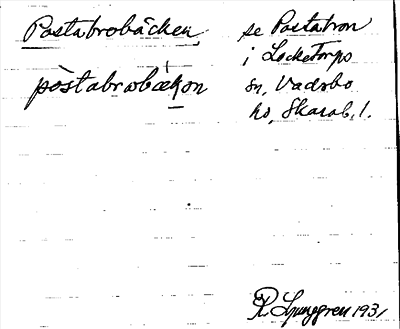 Postabrobäcken
pòstabrωbækon
se Postabron
i Locketorps
sn, Vadsbo
hd, Skarab. l.
R. Ljunggren 1931